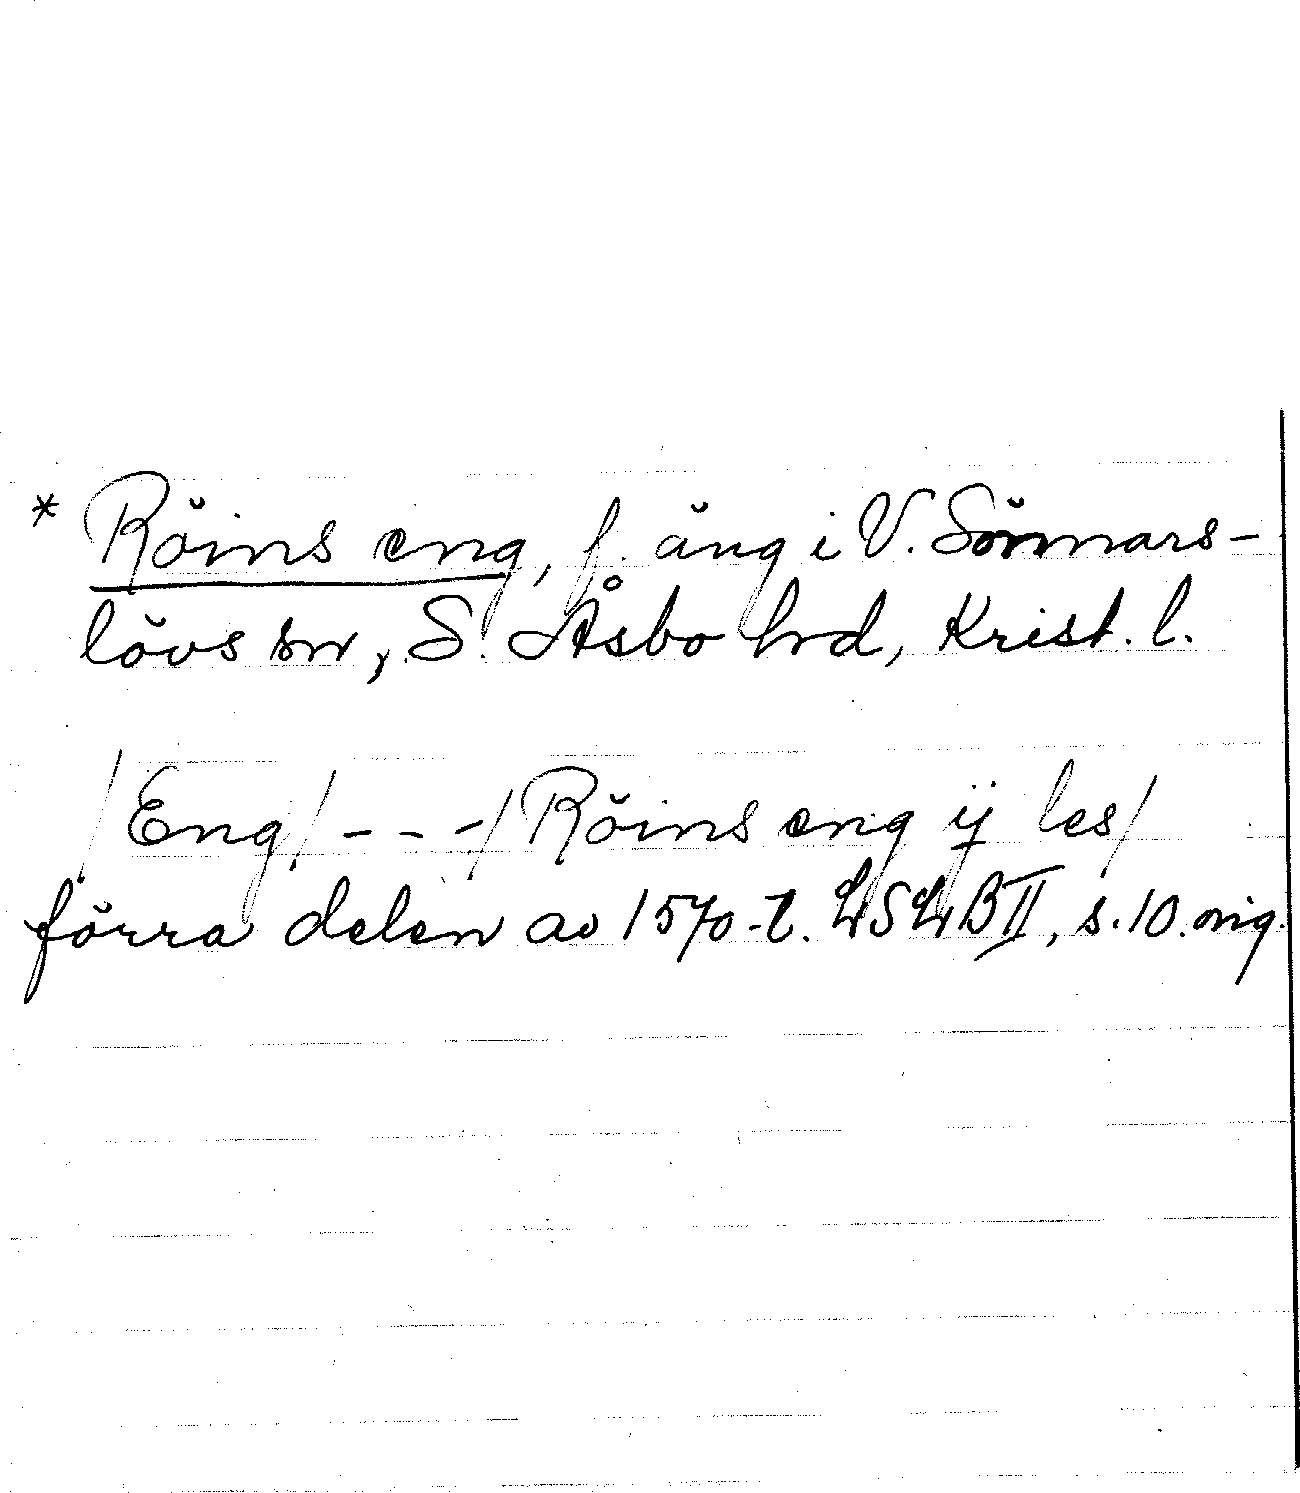 * Röins eng, f. äng i V. Sönnars-
lövs sn, S. Åsbo hrd, Krist. l.
/Eng/ - - - / Röins eng ij les/
förra delen av 1570-t. LSLB II, s. 10. orig.